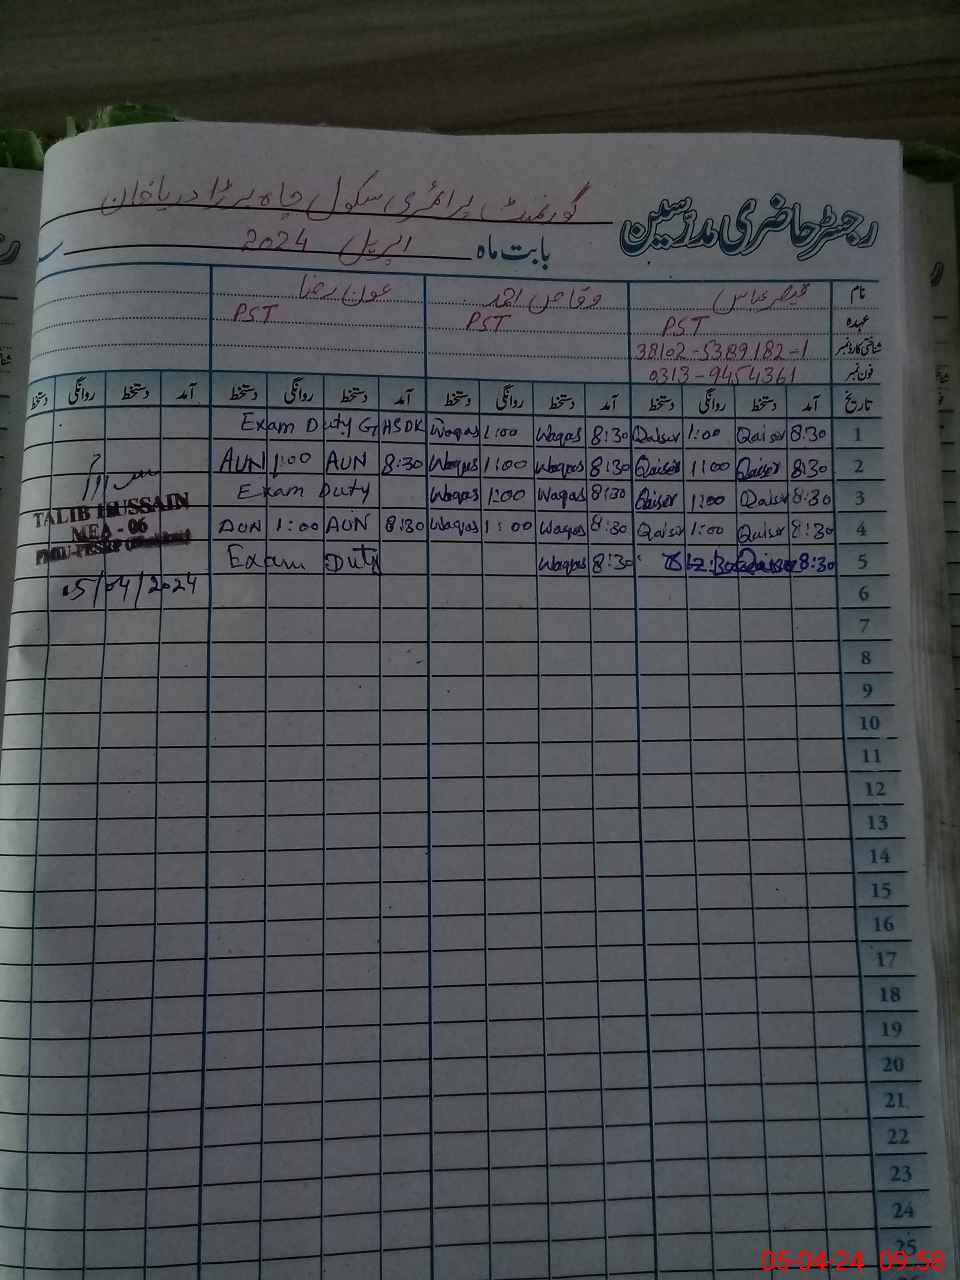 رجسٹر حاضری مدرسین گورنمنٹ پرائمری سکول چاہ دریاخان
بابت ماہ اپریل 2024
نام قیصر عباس وقاص احمد عون رضا
عہدہ PST PST PST
شناختی کارڈ نمبر 38102-5389182-1
فون نمبر 0313-9454361
تاریخ آمد دستخط روانگی دستخط آمد دستخط روانگی دستخط آمد دستخط روانگی دستخط آمد دستخط روانگی دستخط
1 8:30 Qaiser 1:00 Qaiser 8:30 Waqas 1:00 Waqas Exam Duty GHSDK
2 8:30 Qaiser 1:00 Qaiser 8:30 Waqas 1:00 Waqas 8:30 AUN 1:00 AUN
3 8:30 Qaiser 1:00 Qaiser 8:30 Waqas 1:00 Waqas Exam Duty
4 8:30 Qaiser 1:00 Qaiser 8:30 Waqas 1:00 Waqas 8:30 AUN 1:00 AUN
5 8:30 Qaiser 8:30 Waqas Exam Duty
TALIB HUSSAIN
MEA - 06
05/04/2024
6
7
8
9
10
11
12
13
14
15
16
17
18
19
20
21
22
23
24
25
05-04-24 09:58